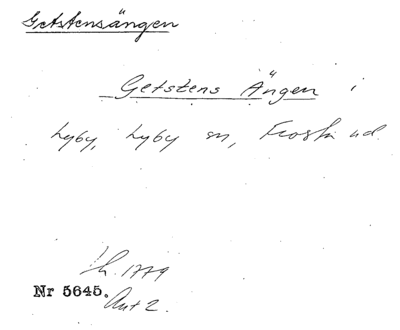 Getstensängen
Getstens Ängen i
Lyby, Lyby sn, Frosta hd.
Lh. 1779
Nr 5645.
Akt 2.